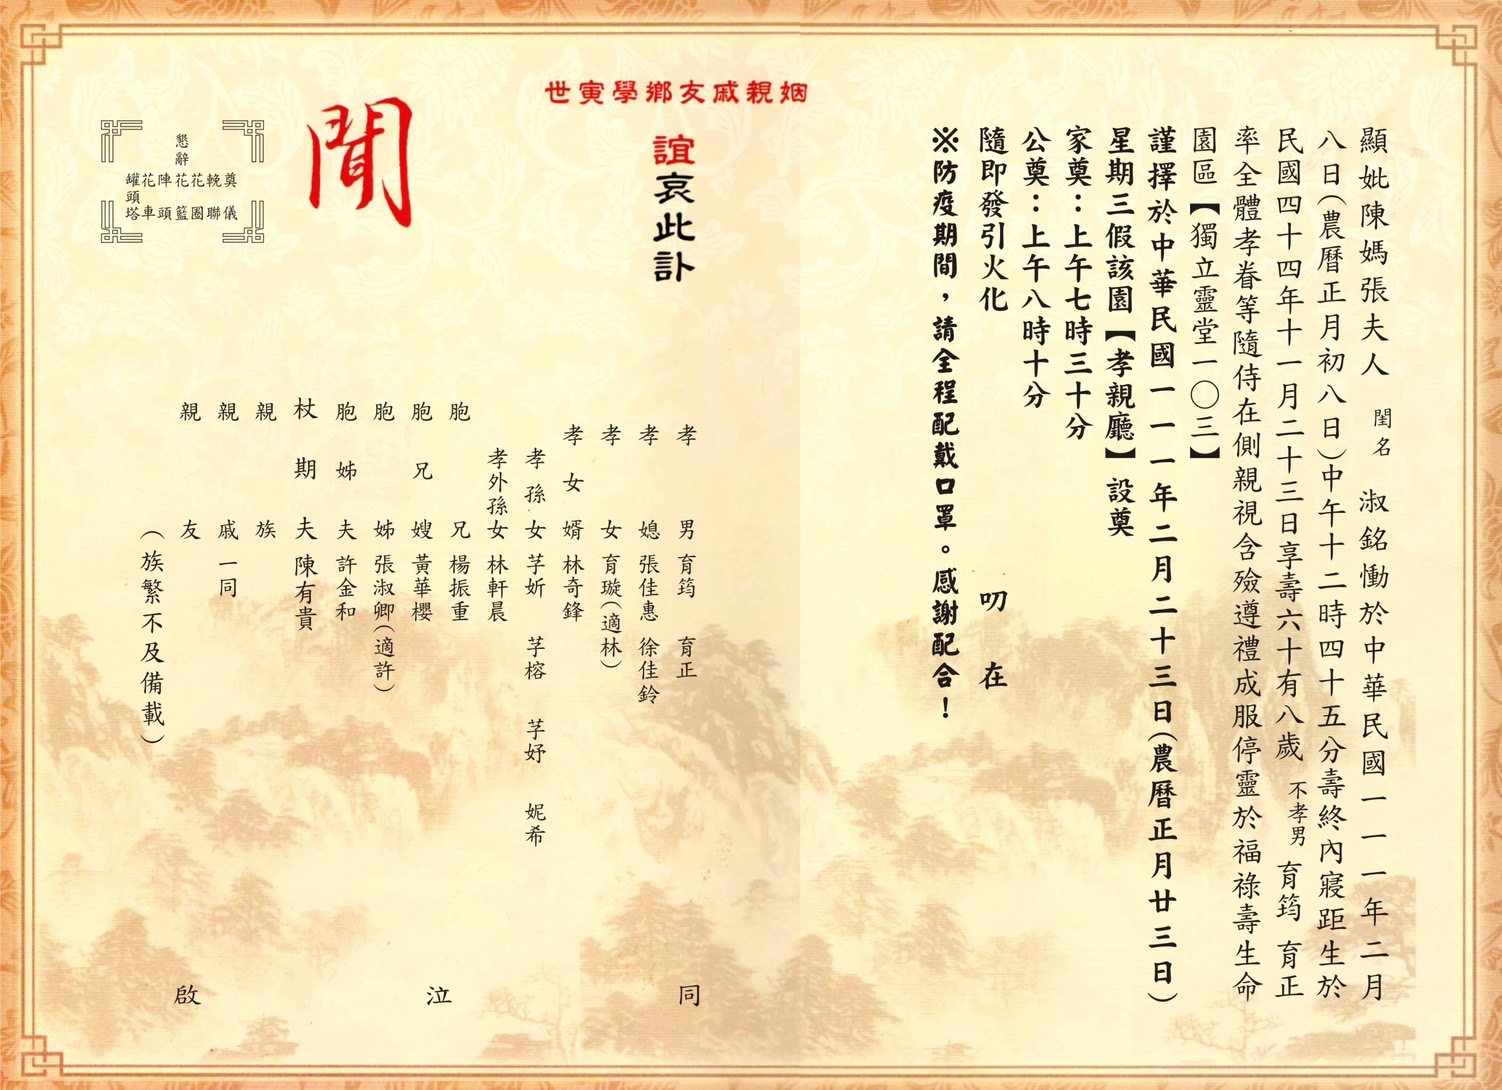 顯妣陳媽張夫人 閨名 淑銘慟於中華民國一一一年二月
八日(農曆正月初八日)中午十二時四十五分壽終內寢距生於
民國四十四年十一月二十三日享壽六十有八歲 不孝男 育筠 育正
率全體孝眷等隨侍在側親視含殮遵禮成服停靈於福祿壽生命
園區【獨立靈堂一〇三】
謹擇於中華民國一一一年二月二十三日(農曆正月廿三日)
星期三假該園【孝親廳】設奠
家奠:上午七時三十分
公奠:上午八時十分
隨即發引火化 叨 在
※防疫期間,請全程配戴口罩。感謝配合!
姻親戚友鄉學寅世
誼哀此訃
聞
懇辭
奠儀
輓聯
花圈
花籃
陣頭
花車
罐頭塔
孝 男 育筠 育正
孝 媳 張佳惠 徐佳鈴
孝 女 育璇(適林)
孝女 婿 林奇鋒
孝孫 女 芓妡 芓榕 芓妤 妮希
孝外孫 女 林軒晨
胞 兄 楊振重
胞兄 嫂 黃華櫻
胞 姊 張淑卿(適許)
胞姊 夫 許金和
杖期 夫 陳有貴
親 族
親 戚 一同
親 友
(族繁不及備載)
同 泣 啟